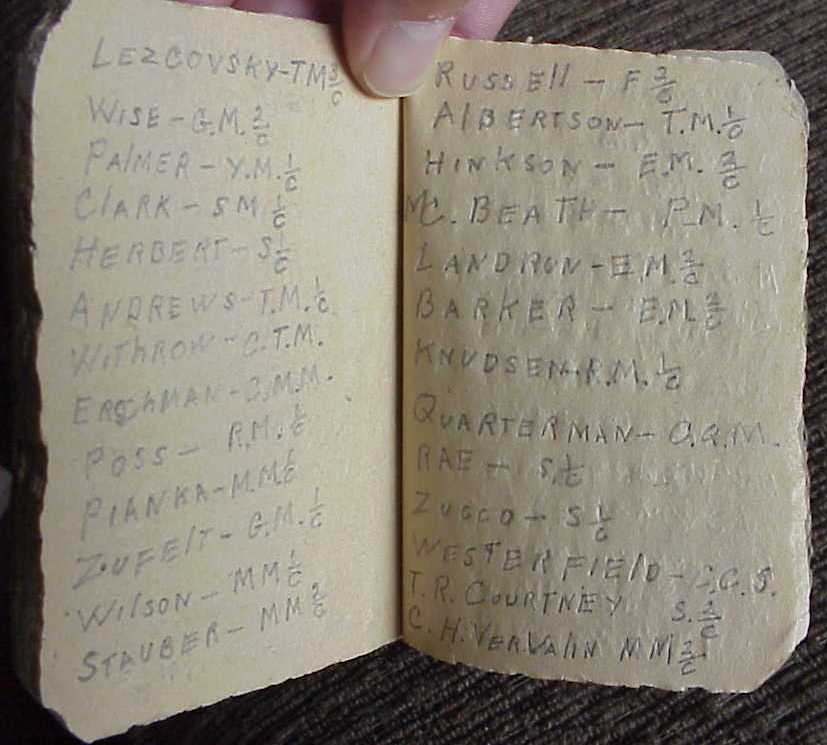 LEZCOVSKY-TM 3/C
WISE-G.M. 2/C
PALMER-Y.M. 1/C
CLARK-SM 1/C
HERBERT-S 1/C
ANDREWS-T.M. 1/C
WITHROW-C.T.M.
POSS- R.M. 1/C
PIANKA-M.M 1/C
ZUFELT-G.M. 1/C
WILSON-MM 1/C
STAUBER-MM 2/C
RUSSELL-F 2/C
ALBERTSON-T.M. 1/C
HINKSON-E.M. 2/C
MC. BEATH- P.M. 1/C
LANDRON-E.M. 2/C
BARKER-E.M. 2/C
KNUDSEN-R.M. 1/C
QUARTERMAN-C.Q.M.
RAE-S. 1/C
ZUCCO-S 1/C
WESTERFIELD-
T.R. COURTNEY S. 2/C
C.H. VERVALIN MM 2/C